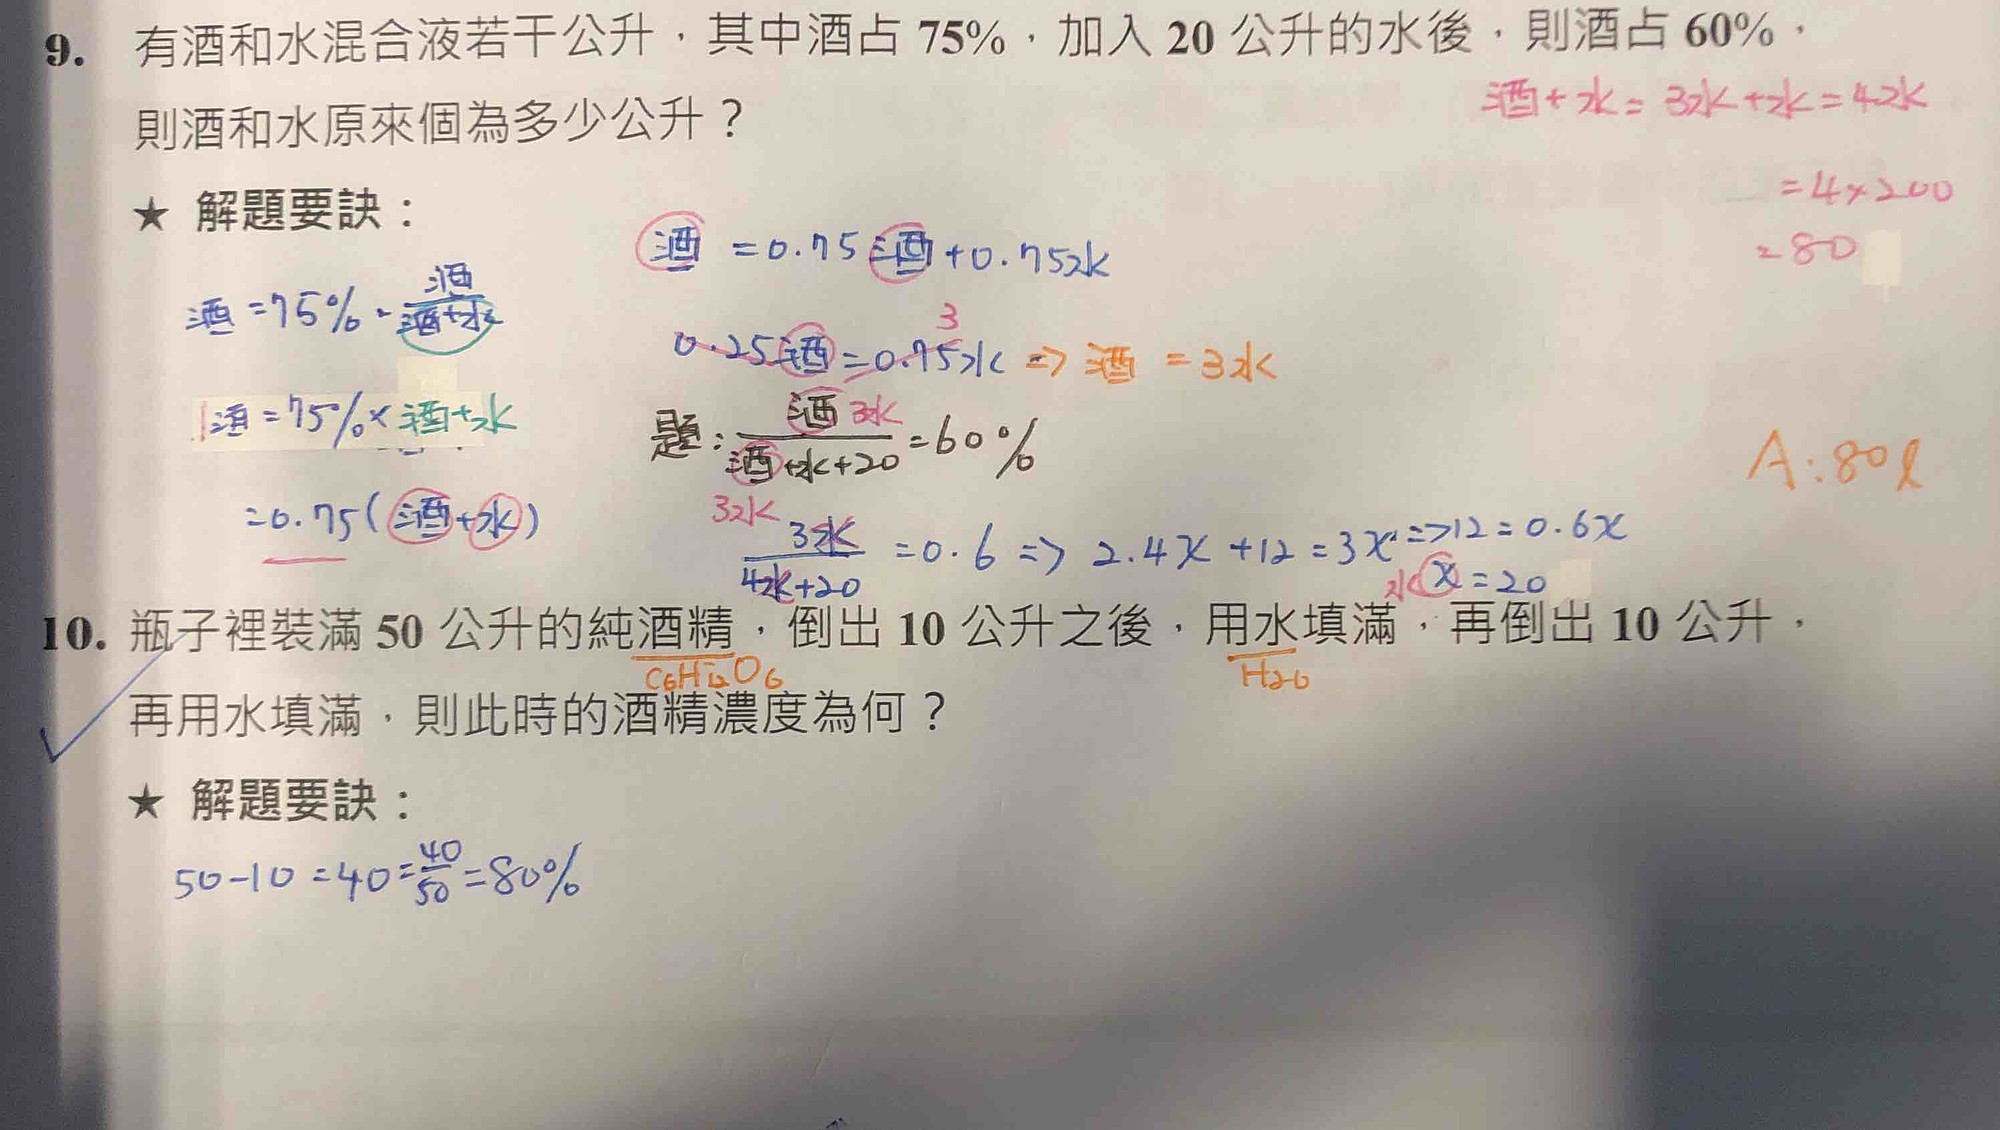 9. 有酒和水混合液若干公升，其中酒占 75%，加入 20 公升的水後，則酒占 60%，
則酒和水原來個為多少公升？
酒+水=3水+水=4水
=4×200
=80
★ 解題要訣：
酒=75%、酒/酒+水
酒=75%×酒+水
=0.75(酒+水)
酒=0.75酒+0.75水
3
0.25酒=0.75水=>酒=3水
題：酒 3水/酒+水+20=60%
3水
3水/4水+20=0.6=>2.4x+12=3x=>12=0.6x
水 x=20
A:80l
10. 瓶子裡裝滿 50 公升的純酒精，倒出 10 公升之後，用水填滿，再倒出 10 公升，
C6H12O6 H2O
再用水填滿，則此時的酒精濃度為何？
★ 解題要訣：
50-10=40=40/50=80%